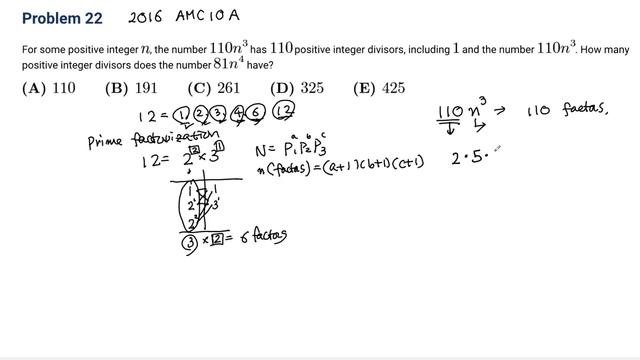 Problem 22 2016 AMC 10 A
For some positive integer n, the number 110n³ has 110 positive integer divisors, including 1 and the number 110n³. How many
positive integer divisors does the number 81n⁴ have?
(A) 110 (B) 191 (C) 261 (D) 325 (E) 425
12 = 1, 2, 3, 4, 6, 12
110 n³ → 110 factas.
Prime factorization
12 = 2² × 3¹
N = P₁ᵃ P₂ᵇ P₃ᶜ
n(factas) = (a+1)(b+1)(c+1)
2 · 5 ·
1 1
2¹ 3¹
2²
3 × 2 = 6 factas